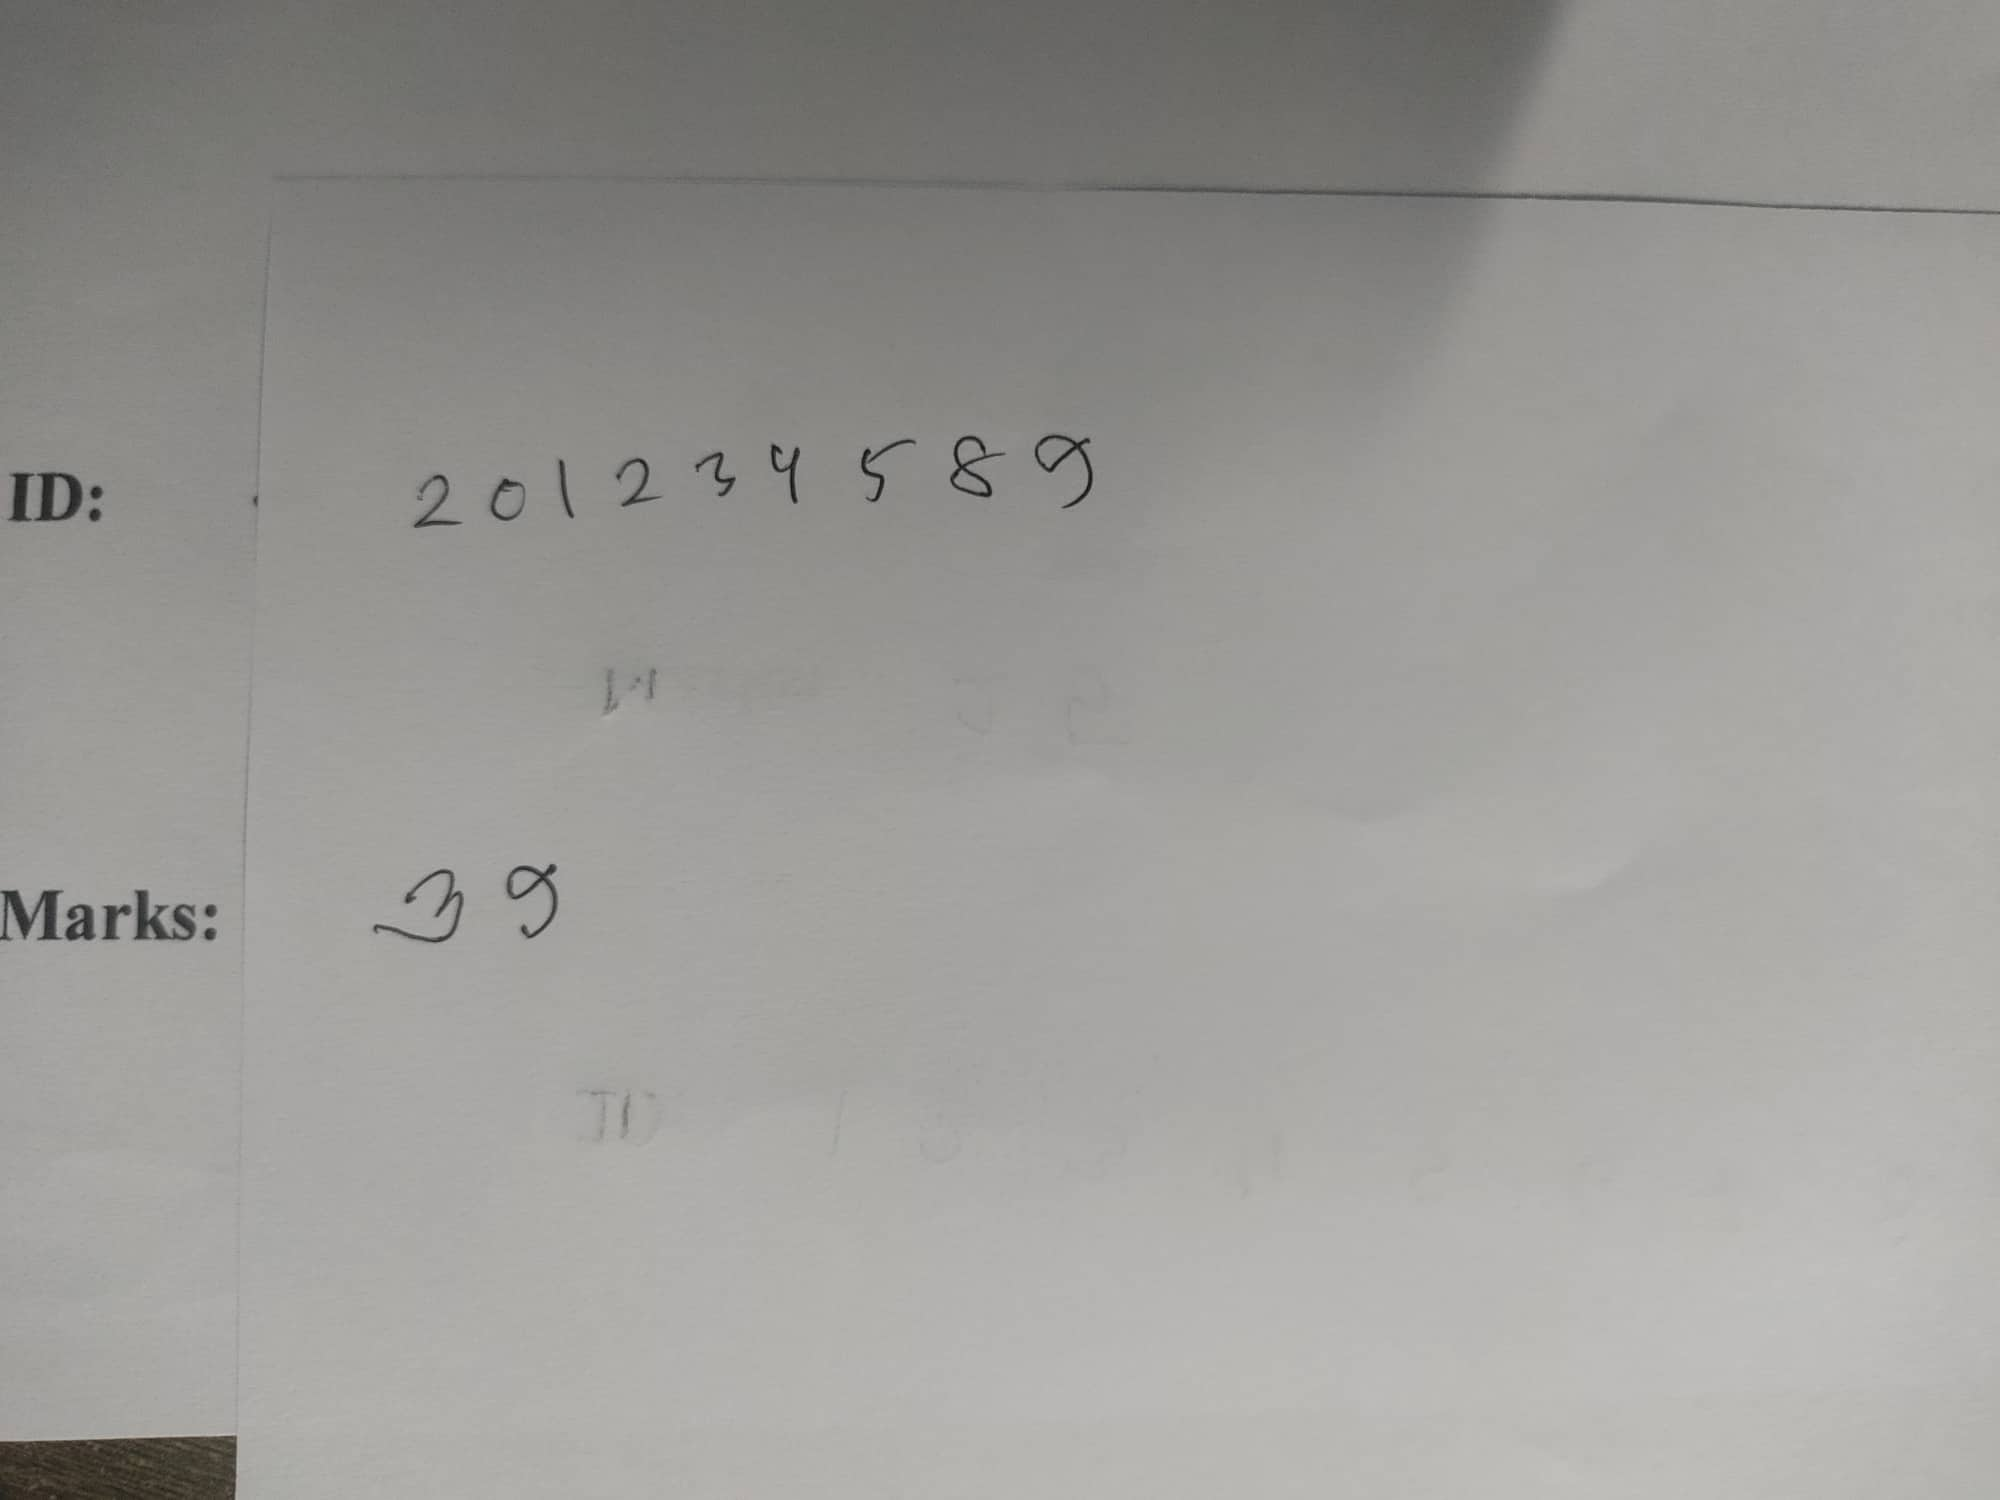 ID: 201234589
Marks: 39